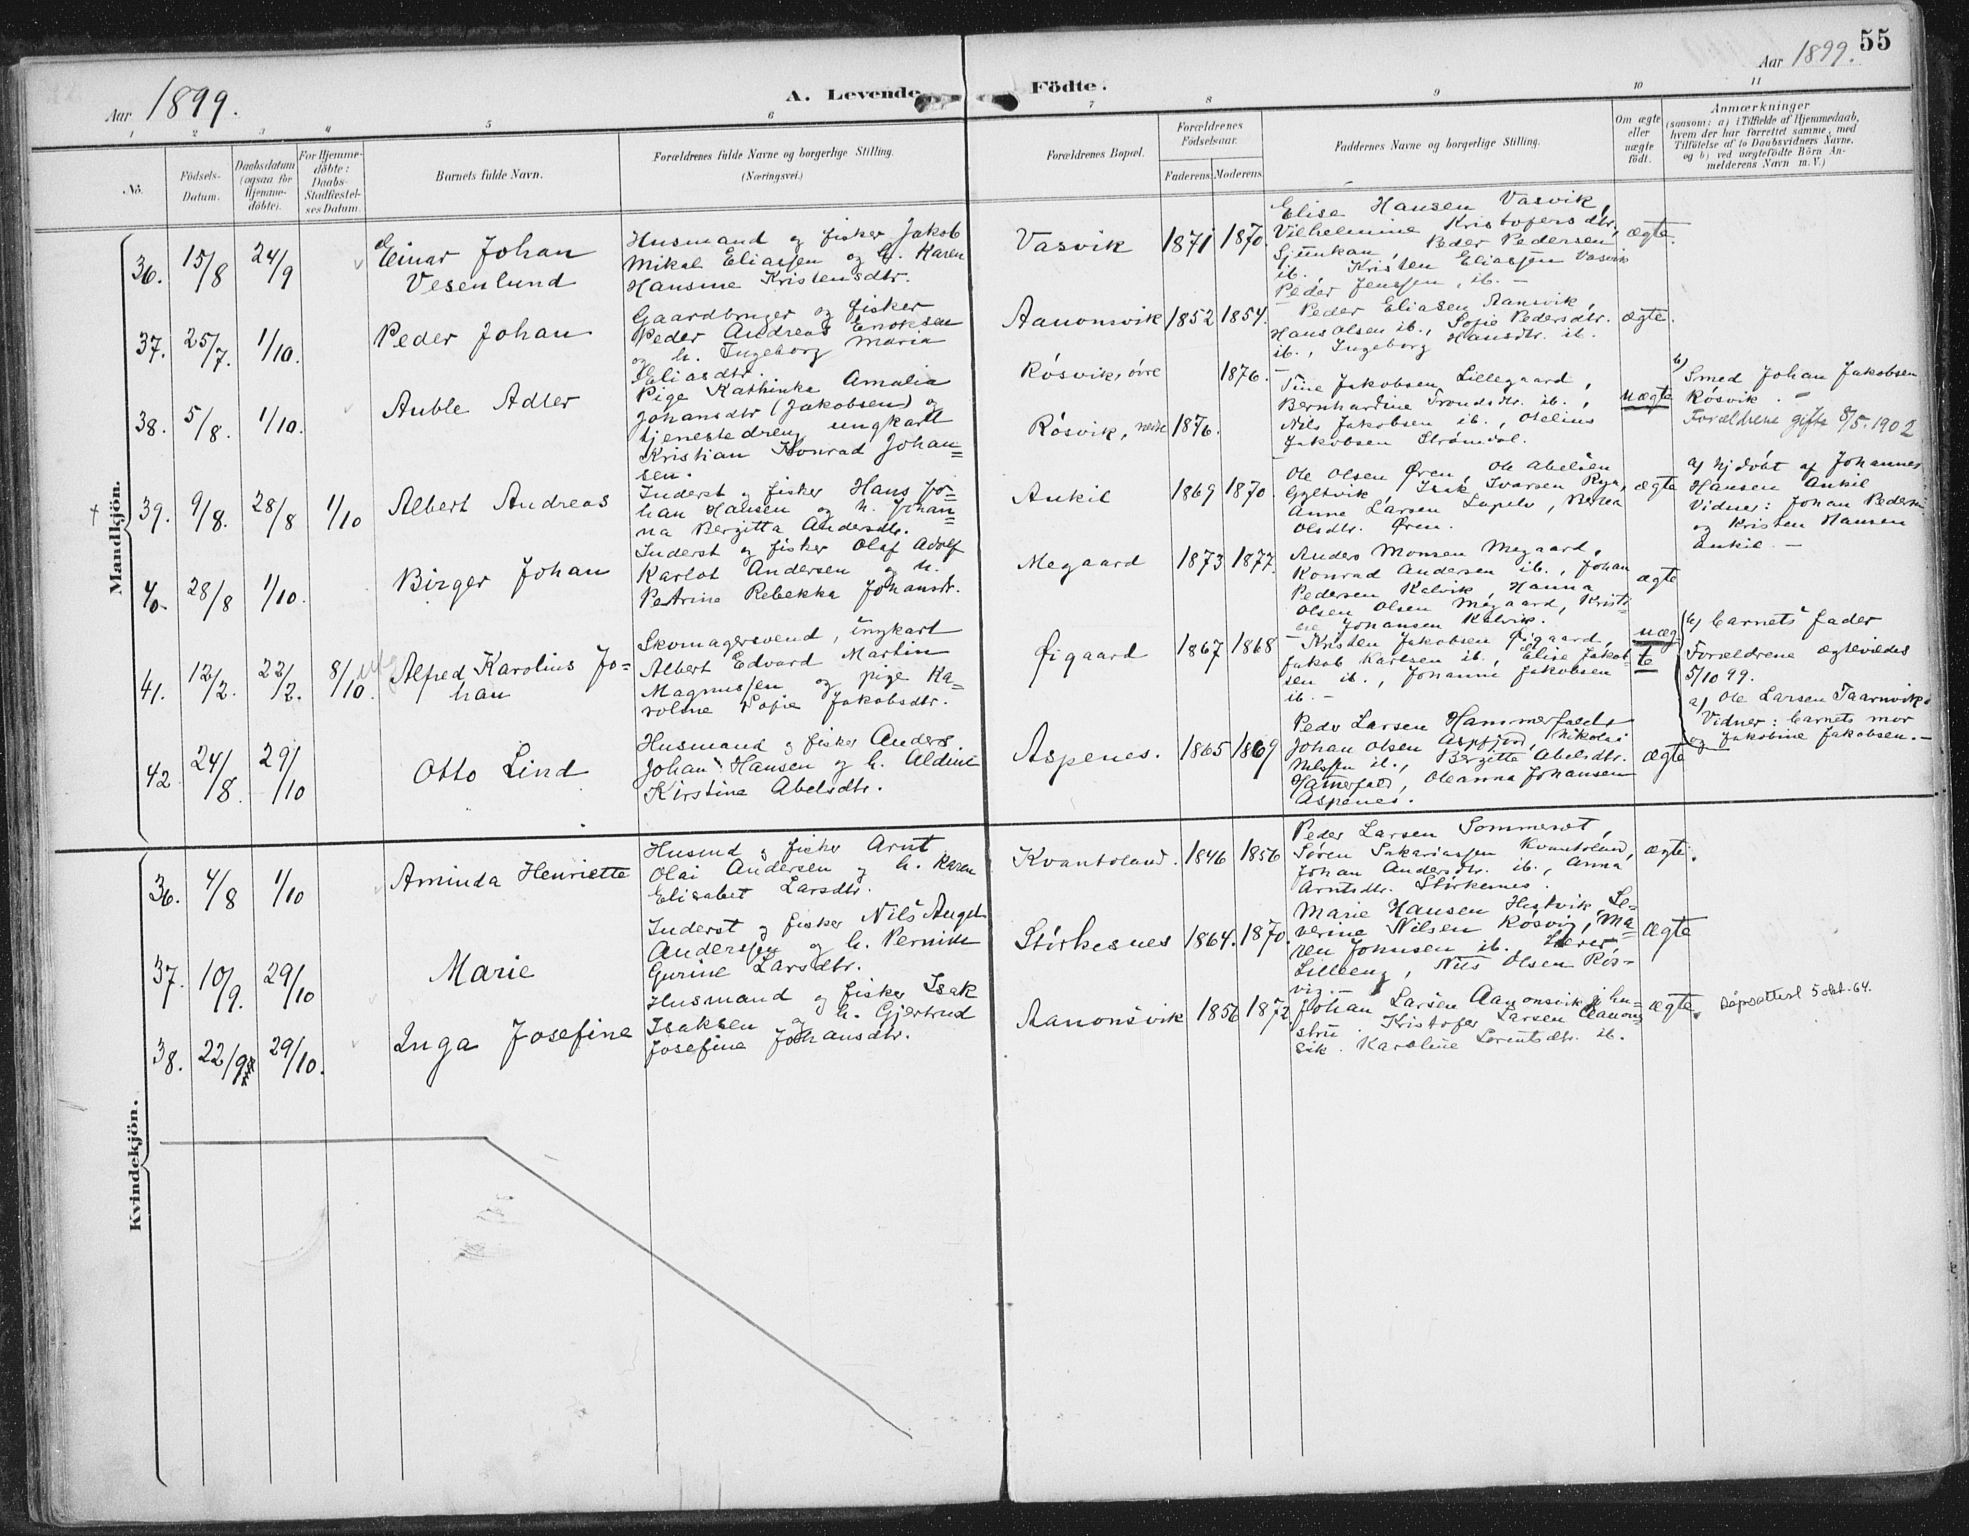 55
Aar 1899.
A. Levende Födte.
Aar 1899.
1 2 3 4 5 6 7 8 9 10 11
No.
Födsels-
Datum.
Daabsdatum
(ogsaa for
Hjemme-
döbte).
For Hjemme-
döbte:
Daabs-
Stadfæstel-
ses Datum.
Barnets fulde Navn.
Forældrenes fulde Navne og borgerlige Stilling.
(Næringsvei.)
Forældrenes Bopæl.
Forældrenes
Fødselsaar.
Faderens. Moderens.
Faddernes Navne og borgerlige Stilling.
Om ægte
eller
uægte
født.
Anmærkninger
(saasom: a) i Tilfælde af Hjemmedaab,
hvem der har forrettet samme, med
Tilföielse af to Daabsvidners Navne,
og b) ved uægtefödte Börn An-
melderens Navn m. V.)
Mandkjön.
36. 15/8 24/9
Einar Johan
Vesenlund
Husmand og fisker Jakob
Mikal Eliassen og h. Karen
Hansine Kristensdtr.
Vasvik 1871 1870.
Elise Hansen Vasvik,
Vilhelmine Kristofersdtr,
Peder Pedersen
ib., Kristen Eliassen Vasvik
Peder Jenssen, ib. –
ægte.
37. 25/7. 1/10.
Peder Johan
Gaardbruger og fisker
Peder Andreas Enoksen
og h. Ingeborg Maria
Eliasdtr.
Aanonsvik 1852 1854.
Peder Eliasen Aansvik,
Hans Olsen ib., Sofie Pedersdtr.
ib., Ingeborg Hansdtr. ib.
ægte.
38. 5/8. 1/10.
Auble Adler
Pige Kathinka Amalia
Johansdtr (Jakobsen) og
tjenestedreng ungkarl
Kristian Konrad Johan-
sen.
Rósvik, övre 1876.
Rósvik, nedre 1876.
Tine Jakobsen Lillegaard,
Bernhardine Trondsdtr. ib.,
Nils Jakobsen ib., Otelius
Jakobsen Strømdal.
uægte
b)
Smed Johan Jakobsen
Rósvik. –
Forældrene gifte 8/5.1902
39. 9/8. 28/8 1/10
Albert Andreas
Inderst og fisker Hans Jo-
han Hansen og h. Johan-
na Bergitta Andersdtr.
Ankil 1869 1870.
Ole Olsen Øren, Ole Abelsen
Gyltvik, Isak Ivarsen Rya,
Anne Larsen
Olsdtr. Øren.
ægte
a) hj.döbt af Johannes
Hansen Ankil
Vidner: Johan Peders
og Kristen Hansen
Ankil. –
40. 28/8 1/10.
Birger Johan
Inderst og fisker Olaf Adolf
Karlot Andersen og h.
Petrine Rebekka Johansdtr.
Megaard 1873 1877.
Anders Monsen Megaard,
Konrad Andersen ib., Johan
Pedersen Kalvik, Hanna
Olsen Olsen Megaard, Kristi-
ne Johansen Kalvik.
ægte
41. 12/2. 22/2. 8/10.
Alfred Karolius Jo-
han
Skomagersvend, ungkarl
Albert Edvard Martin
Magnussen og pige Ka-
roline Sofie Jakobsdtr.
Øigaard 1867 1868
Kristen Jakobsen Øigaard,
Jakob Karlsen ib., Elise Jakob-
sen ib., Johanna Jakobsen
ib. –
uæg-
te
b) barnets fader
Forældrene ægteviedes
5/10 99.
a) Ole Larsen Taarnvik.
Vidner: barnets mor
og Jakobine Jakobsen. –
42. 24/8. 29/10
Otto Lind
Husmand og fisker Anders
Johan Hansen og h. Aldine
Kirstine Abelsdtr.
Aspenes. 1865 1869
Peder Larsen Hammerfaldt
Johan Olsen Aspfjord, Nikolai
Nilssen ib., Bergitte Abelsdtr.
Oleanna Johansen
Aspenes.
ægte
Kvindekjön.
36. 4/8 1/10
Aminda Henriette
Husmd og fisker Arnt
Olai Andersen og h. Karen
Elisabet Larsdtr.
Kvantoland. 1846 1856
Peder Larsen Sommerset,
Søren Sakariassen Kvantoland,
Johan Andersdtr. ib., Anna
Arntsdtr. Störkesnes.
ægte.
37. 10/9. 29/10
Marie
Inderst og fisker Nils Angel
Anderssen og h. Pernille
Gurine Larsdtr.
Störkesnes 1864. 1870.
Marie Hansen Hestvik, Se-
verine Nilsen Rósvig, Ma-
ren Johnsen ib. Lærer
Nils Olsen Rós-
vig. –
ægte
38. 22/9 29/10.
Inga Josefine
Husmand og fisker Isak
Isaksen og h. Gjertrud
Josefine Johansdtr.
Aanonsvik 1856 1872
Johan Larsen Aanonsvik og hu-
stru. Kristofer Larsen Aanons-
vik. Karoline Lorentsdtr. ib.
ægte.
Dåpsattest 5 okt. 64.